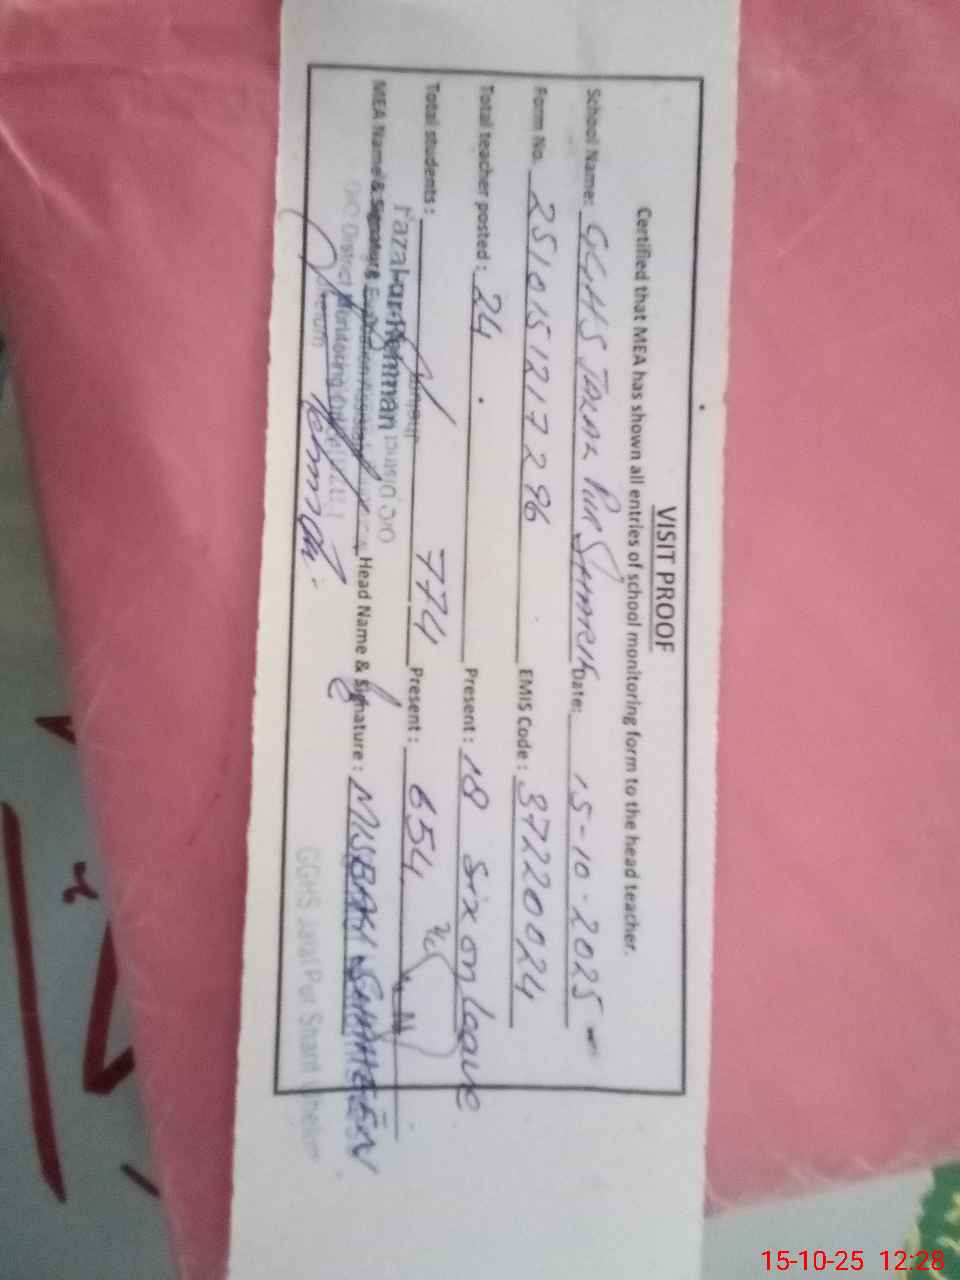 VISIT PROOF
Certified that MEA has shown all entries of school monitoring form to the head teacher.
School Name: GGHS JALAL PUR SHARIF Date: 15-10-2025
Form No. 2510151217296 EMIS Code: 37220024
Total teacher posted: 24 Present: 18 six on leave
Total students: 774 Present: 654
Fazal-ur-Rehman
MEA Name & Signature Head Name & Signature: MISBAH SHAHEEN
O/O District Monitoring Officer
Jhelum Rehman
GGHS Jalal Pur Sharif Jhelum
15-10-25 12:28